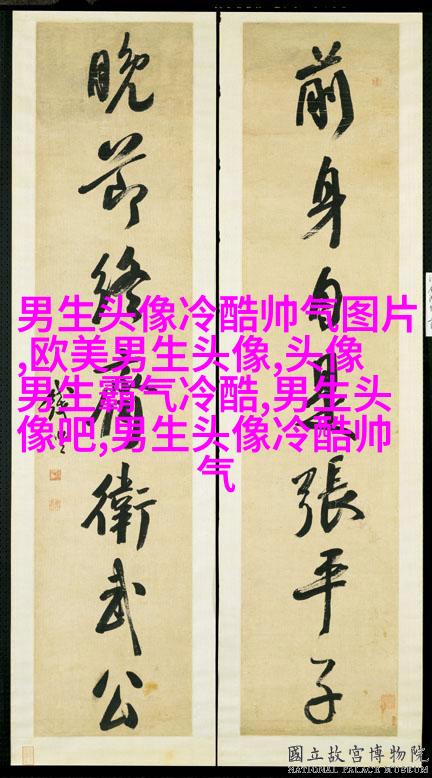 前身自是張平子
晚節終衛武公
男生头像冷酷帅气图片
,欧美男生头像,头像
男生霸气冷酷,男生头
像吧,男生头像冷酷帅
气
國立故宮博物院
NATIONAL PALACE MUSEUM